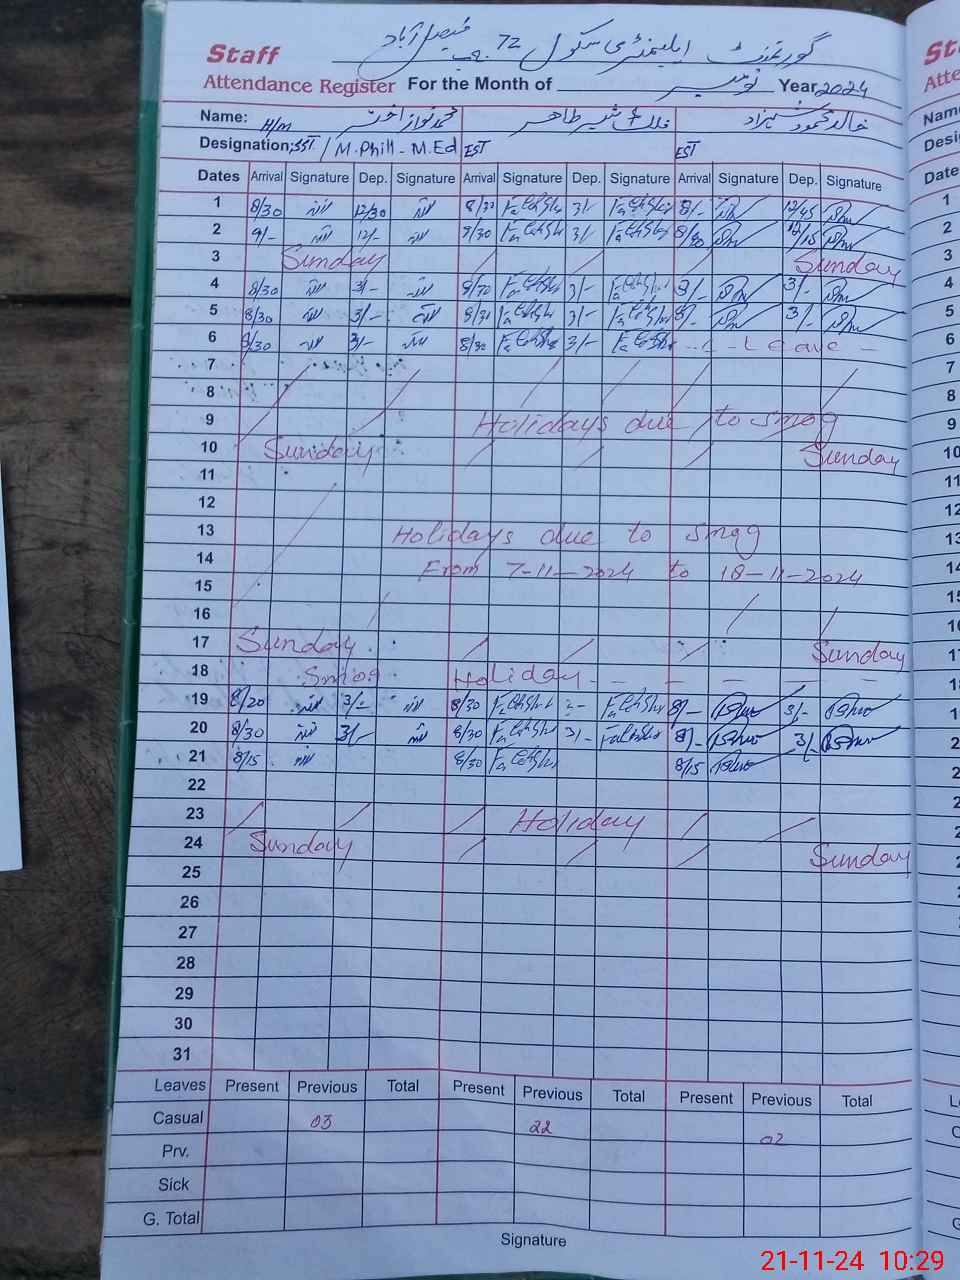 گورنمنٹ ایلیمنٹری سکول 72 ج ب فیصل آباد
Staff
Attendance Register For the Month of نومبر Year 2024
Name: H/m محمد نواز اختر فلک شیر طاہر خالد محمود شہزاد
Designation: SST / M.Phill - M.Ed EST EST
Dates Arrival Signature Dep. Signature Arrival Signature Dep. Signature Arrival Signature Dep. Signature
1 8/30 12/30 3/- 8/- 12/45
2 9/- 12/- 8/30 3/- 8/30 12/15
3 Sunday Sunday
4 8/30 3/- 3/- 8/- 3/-
5 8/30 3/- 3/- 8/- 3/-
6 8/30 3/- 8/30 3/- Leave
7
8
9 Holidays due to smog
10 Sunday Sunday
11
12
13 Holidays due to smog
14 From 7-11-2024 to 18-11-2024
15
16
17 Sunday Sunday
18 Smog Holiday
19 8/20 3/- 8/30 8/- 3/-
20 8/30 3/- 8/30 3/- 8/- 3/-
21 8/15 8/30 8/15
22
23 Holiday
24 Sunday Sunday
25
26
27
28
29
30
31
Leaves Present Previous Total Present Previous Total Present Previous Total
Casual 03 22 02
Prv.
Sick
G. Total
Signature
21-11-24 10:29